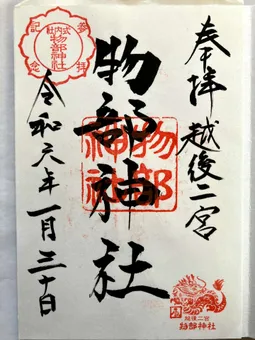 奉拝 越後二宮
物部神社
物部
神社
令和六年一月三十日
社内式
物部神社
参拝
記念
越後二宮